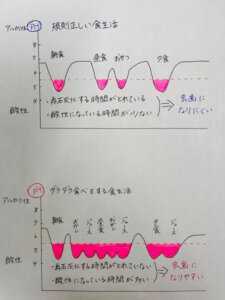 アルカリ性 pH 規則正しい食生活
8
7 朝食 昼食 おやつ 夕食
6
5
4
酸性
・再石灰化する時間がとれている
・酸性になっている時間が少ない
⇒ 虫歯に
なりにくい
pH ダラダラ食べをする食生活
アルカリ性
8
7 朝食 おかし ジュース 昼食 おかし ジュース 夕食 ジュース
6
5
4
酸性
・再石灰化する時間がとれていない
・酸性になっている時間が多い
⇒ 虫歯に
なりやすい